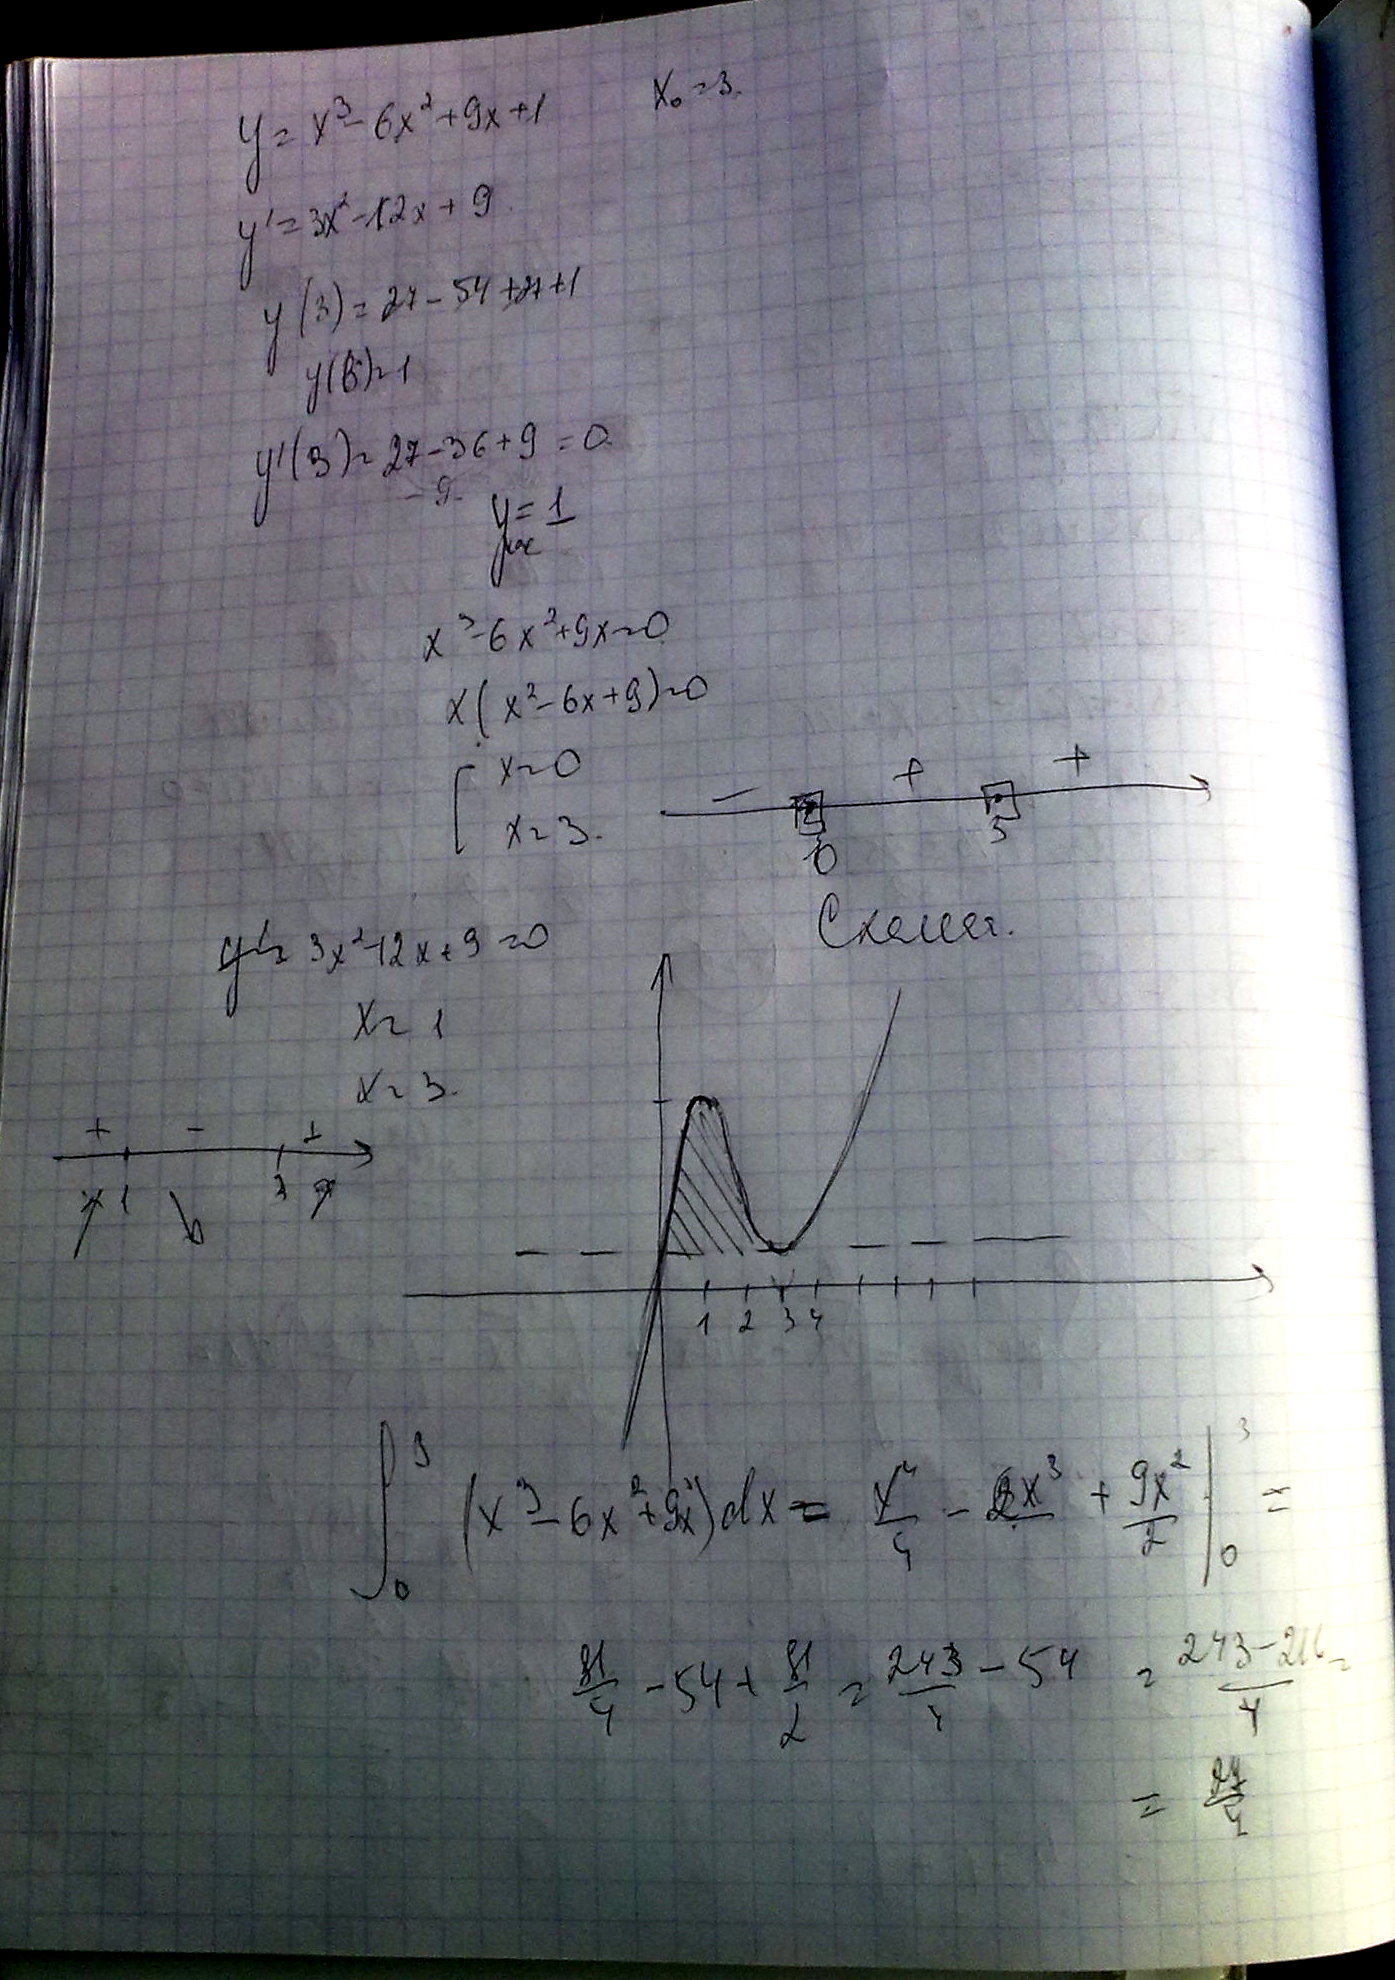 y = x³ - 6x² + 9x + 1 x₀ = 3.
y' = 3x² - 12x + 9.
y(3) = 27 - 54 + 27 + 1
y(3) = 1
y'(3) = 27 - 36 + 9 = 0
- 9.
y = 1
x³ - 6x² + 9x = 0
x(x² - 6x + 9) = 0
x = 0
x = 3.
- + +
0 3
y' = 3x² - 12x + 9 = 0
x = 1
x = 3.
+ - +
1 3
1 2 3 4
∫₀³ (x³ - 6x² + 9x) dx = x⁴/4 - 2x³ + 9x²/2 |₀³ =
81/4 - 54 + 81/2 = 243/4 - 54 = 243 - 216/4 =
= 27/4